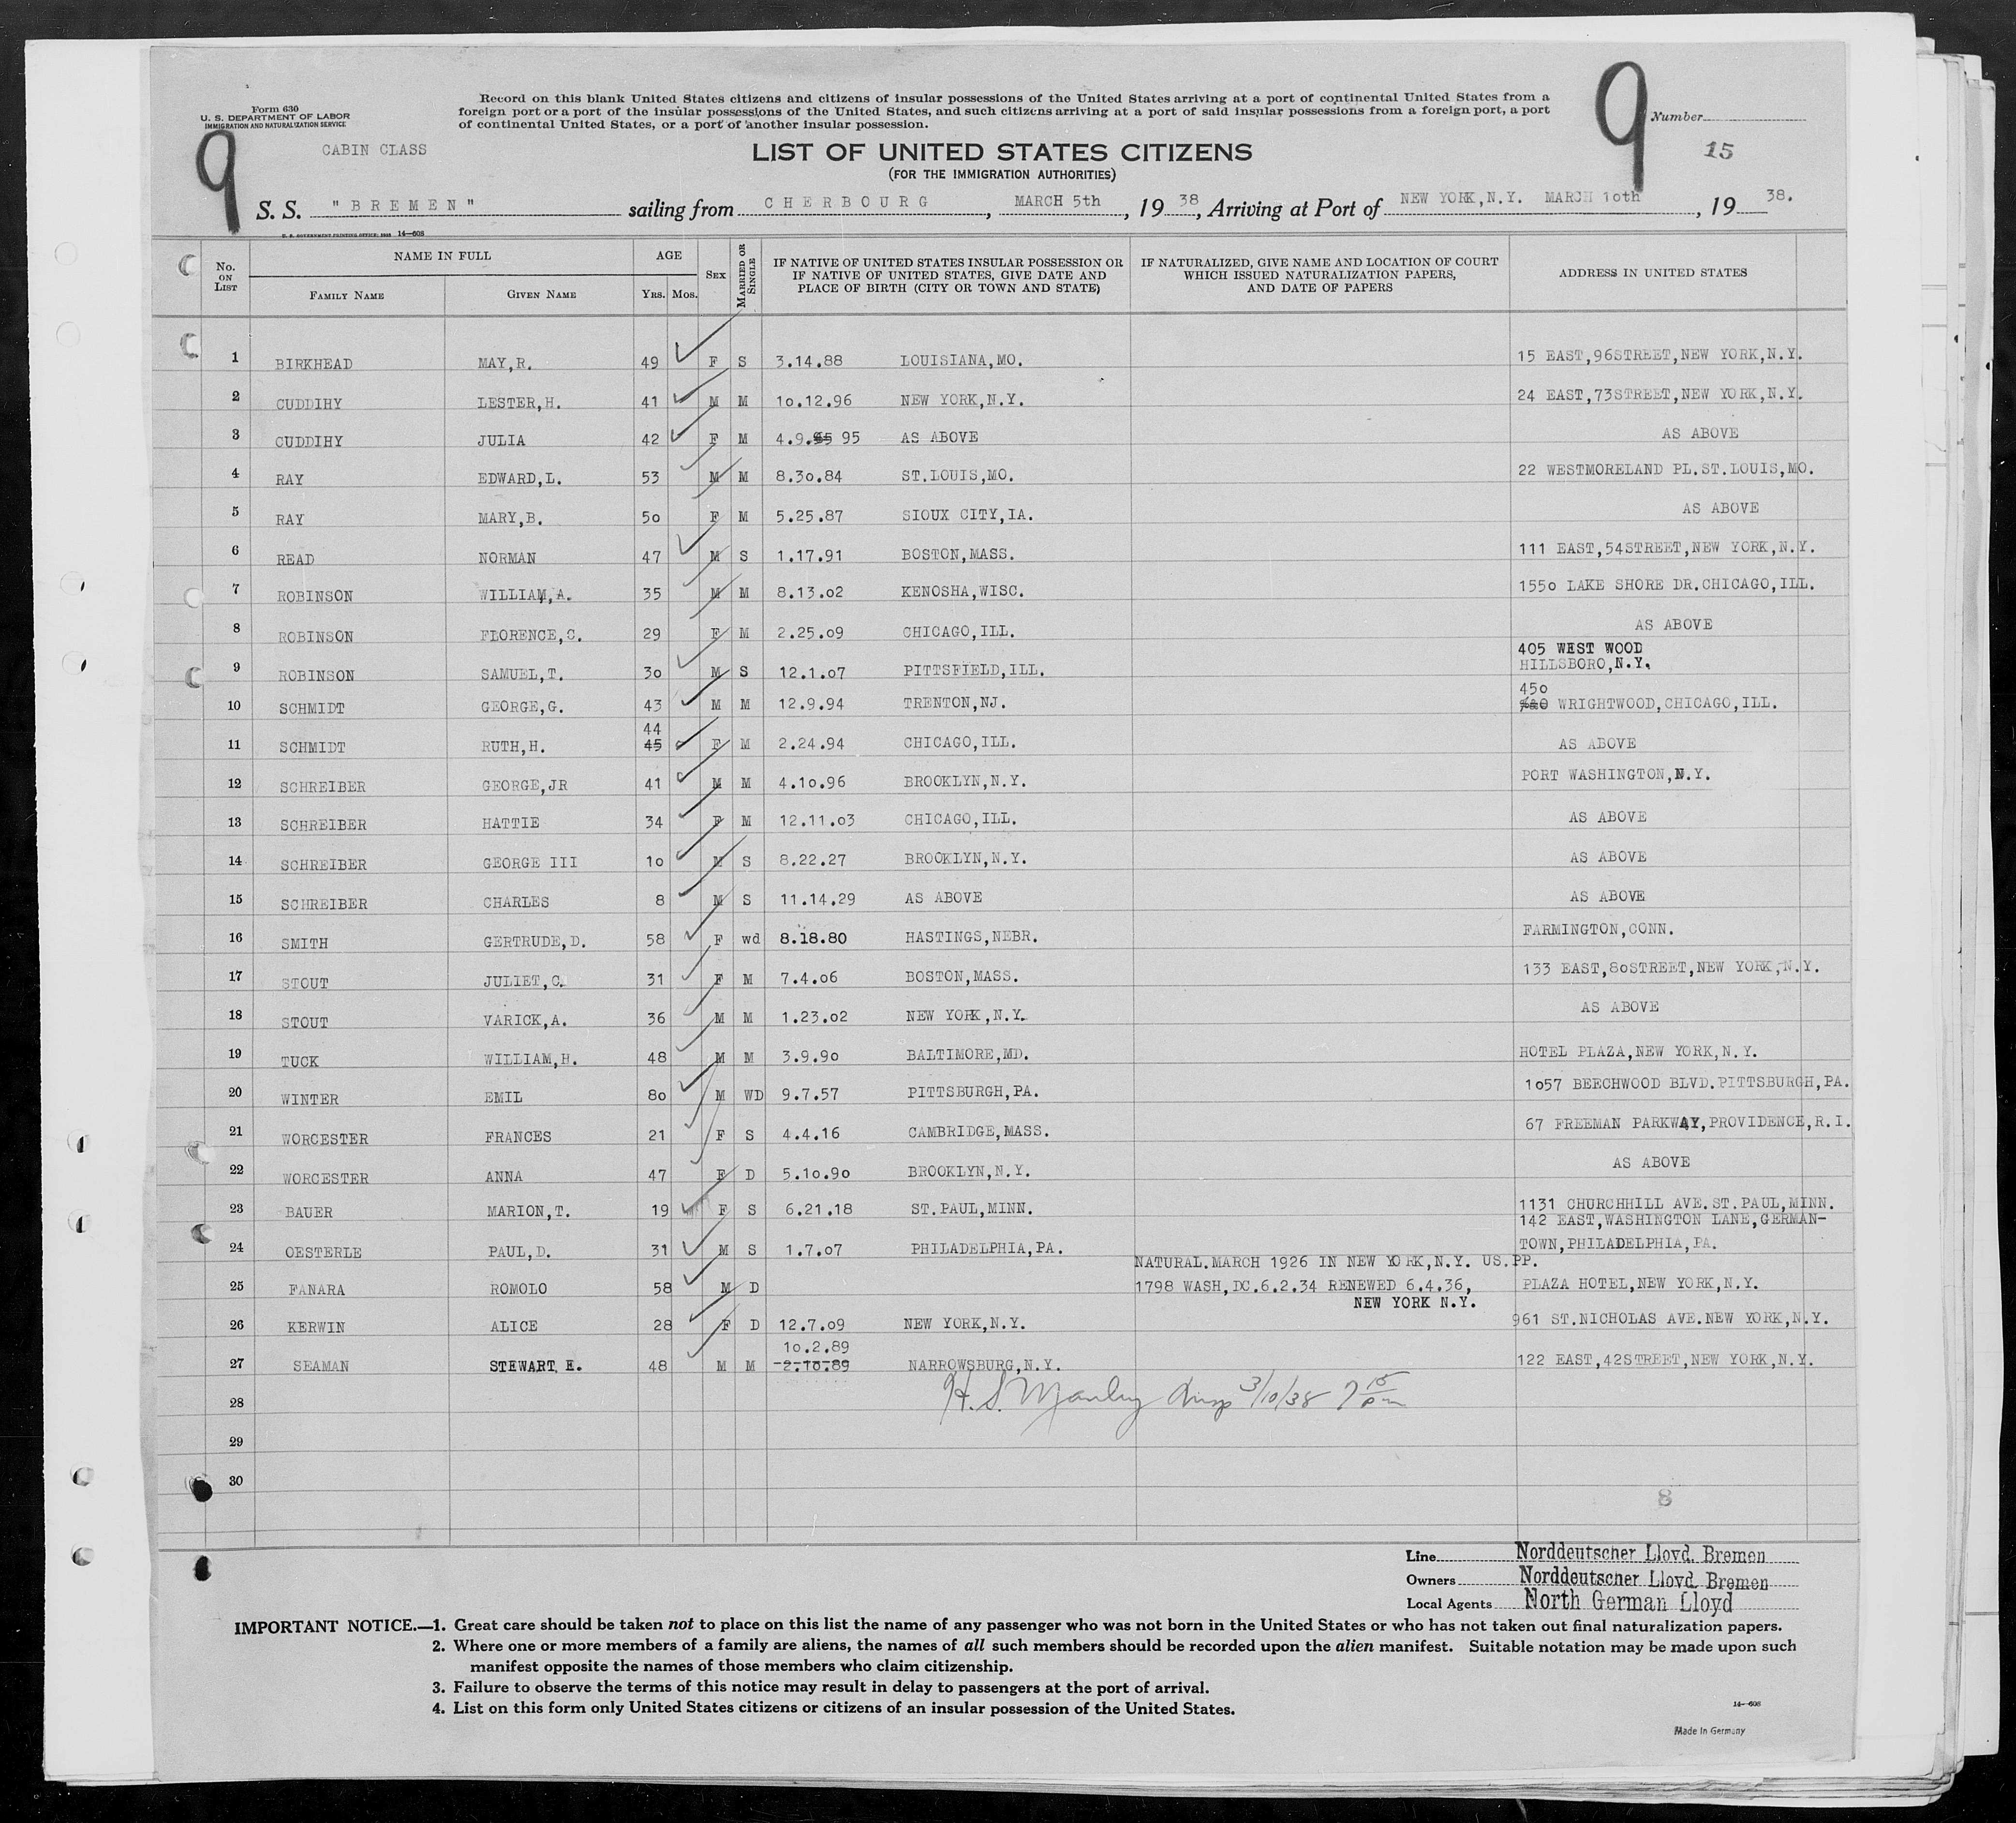 Form 630
U. S. DEPARTMENT OF LABOR
IMMIGRATION AND NATURALIZATION SERVICE
Record on this blank United States citizens and citizens of insular possessions of the United States arriving at a port of continental United States from a
foreign port or a port of the insular possessions of the United States, and such citizens arriving at a port of said insular possessions from a foreign port, a port
of continental United States, or a port of another insular possession.
9
9
Number
15
CABIN CLASS
LIST OF UNITED STATES CITIZENS
(FOR THE IMMIGRATION AUTHORITIES)
S. S. "BREMEN" sailing from CHERBOURG, MARCH 5th, 19 38, Arriving at Port of NEW YORK,N.Y. MARCH 1oth, 19 38.
U. S. GOVERNMENT PRINTING OFFICE: 1935 14-608
No. ON LIST NAME IN FULL AGE SEX MARRIED OR SINGLE IF NATIVE OF UNITED STATES INSULAR POSSESSION OR IF NATIVE OF UNITED STATES, GIVE DATE AND PLACE OF BIRTH (CITY OR TOWN AND STATE) IF NATURALIZED, GIVE NAME AND LOCATION OF COURT WHICH ISSUED NATURALIZATION PAPERS, AND DATE OF PAPERS ADDRESS IN UNITED STATES
FAMILY NAME GIVEN NAME YRS. MOS.
1 BIRKHEAD MAY,R. 49 F S 3.14.88 LOUISIANA,MO. 15 EAST,96STREET,NEW YORK,N.Y.
2 CUDDIHY LESTER,H. 41 M M 1o.12.96 NEW YORK,N.Y. 24 EAST,73STREET,NEW YORK,N.Y.
3 CUDDIHY JULIA 42 F M 4.9. 95 AS ABOVE AS ABOVE
4 RAY EDWARD,L. 53 M M 8.3o.84 ST.LOUIS,MO. 22 WESTMORELAND PL.ST.LOUIS,MO.
5 RAY MARY,B. 5o F M 5.25.87 SIOUX CITY,IA. AS ABOVE
6 READ NORMAN 47 M S 1.17.91 BOSTON,MASS. 111 EAST,54STREET,NEW YORK,N.Y.
7 ROBINSON WILLIAM,A. 35 M M 8.13.o2 KENOSHA,WISC. 155o LAKE SHORE DR.CHICAGO,ILL.
8 ROBINSON FLORENCE,C. 29 F M 2.25.o9 CHICAGO,ILL. AS ABOVE
9 ROBINSON SAMUEL,T. 3o M S 12.1.o7 PITTSFIELD,ILL. 405 WEST WOOD
HILLSBORO,N.Y.
10 SCHMIDT GEORGE,G. 43 M M 12.9.94 TRENTON,NJ. 45o WRIGHTWOOD,CHICAGO,ILL.
11 SCHMIDT RUTH,H. 44 45 F M 2.24.94 CHICAGO,ILL. AS ABOVE
12 SCHREIBER GEORGE,JR 41 M M 4.1o.96 BROOKLYN,N.Y. PORT WASHINGTON,N.Y.
13 SCHREIBER HATTIE 34 F M 12.11.o3 CHICAGO,ILL. AS ABOVE
14 SCHREIBER GEORGE III 1o M S 8.22.27 BROOKLYN,N.Y. AS ABOVE
15 SCHREIBER CHARLES 8 M S 11.14.29 AS ABOVE AS ABOVE
16 SMITH GERTRUDE,D. 58 F wd 8.18.80 HASTINGS,NEBR. FARMINGTON,CONN.
17 STOUT JULIET,C. 31 F M 7.4.o6 BOSTON,MASS. 133 EAST,8oSTREET,NEW YORK,N.Y.
18 STOUT VARICK,A. 36 M M 1.23.o2 NEW YORK,N.Y. AS ABOVE
19 TUCK WILLIAM,H. 48 M M 3.9.9o BALTIMORE,MD. HOTEL PLAZA,NEW YORK,N.Y.
20 WINTER EMIL 8o M WD 9.7.57 PITTSBURGH,PA. 1o57 BEECHWOOD BLVD.PITTSBURGH,PA.
21 WORCESTER FRANCES 21 F S 4.4.16 CAMBRIDGE,MASS. 67 FREEMAN PARKWAY,PROVIDENCE,R.I.
22 WORCESTER ANNA 47 F D 5.1o.9o BROOKLYN,N.Y. AS ABOVE
23 BAUER MARION,T. 19 F S 6.21.18 ST.PAUL,MINN. 1131 CHURCHHILL AVE.ST.PAUL,MINN.
24 OESTERLE PAUL,D. 31 M S 1.7.o7 PHILADELPHIA,PA. 142 EAST,WASHINGTON LANE,GERMAN-
TOWN,PHILADELPHIA,PA.
NATURAL.MARCH 1926 IN NEW YORK,N.Y. US.PP.
25 FANARA ROMOLO 58 M D 1798 WASH,DC.6.2.34 RENEWED 6.4.36, PLAZA HOTEL,NEW YORK,N.Y.
NEW YORK N.Y.
26 KERWIN ALICE 28 F D 12.7.o9 NEW YORK,N.Y. 961 ST.NICHOLAS AVE.NEW YORK,N.Y.
1o.2.89
27 SEAMAN STEWART E. 48 M M 2.1o.89 NARROWSBURG,N.Y. 122 EAST,42STREET,NEW YORK,N.Y.
28 H. S. Manley Insp 3/10/38 7 15 pm
29
30
8
Line Norddeutscher Lloyd, Bremen
Owners Norddeutscher Lloyd, Bremen
Local Agents North German Lloyd
IMPORTANT NOTICE.—1. Great care should be taken not to place on this list the name of any passenger who was not born in the United States or who has not taken out final naturalization papers.
2. Where one or more members of a family are aliens, the names of all such members should be recorded upon the alien manifest. Suitable notation may be made upon such
manifest opposite the names of those members who claim citizenship.
3. Failure to observe the terms of this notice may result in delay to passengers at the port of arrival.
4. List on this form only United States citizens or citizens of an insular possession of the United States.
14-608
Made in Germany